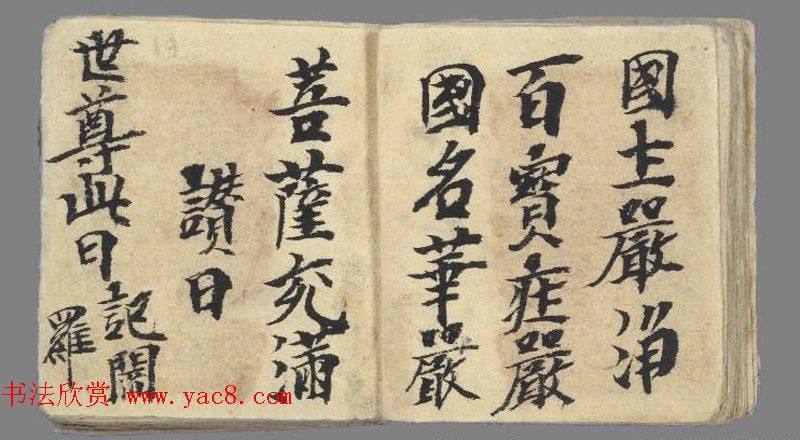 國土嚴净
百寶庄嚴
國名華嚴
菩薩充滿
讚曰
世尊此日記闍
羅
书法欣赏 www.yac8.com